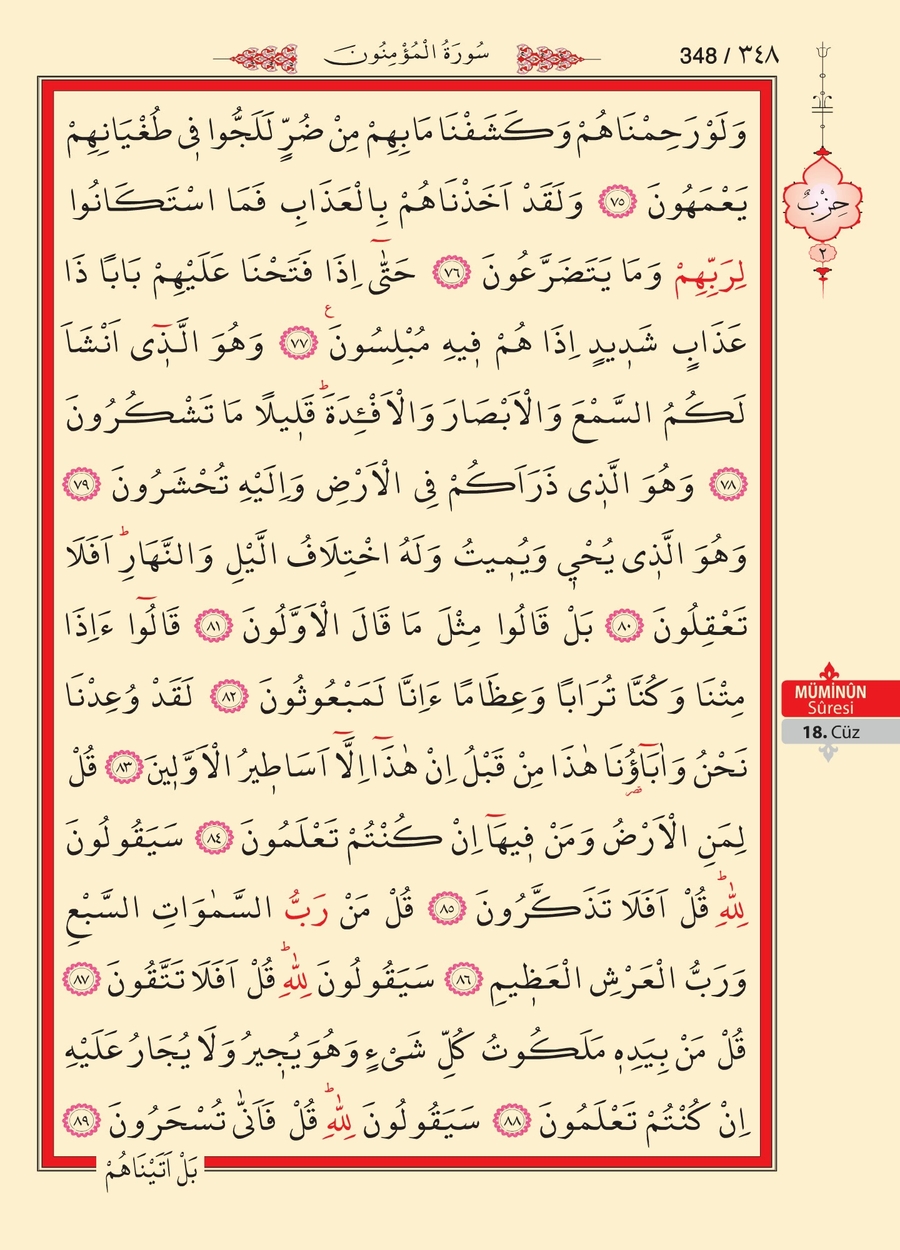 سُورَةُ الْمُؤْمِنُونَ
348 / ٣٤٨
وَلَوْ رَحِمْنَاهُمْ وَكَشَفْنَا مَا بِهِمْ مِنْ ضُرٍّ لَلَجُّوا ف۪ي طُغْيَانِهِمْ
يَعْمَهُونَ ﴿٧٥﴾ وَلَقَدْ اَخَذْنَاهُمْ بِالْعَذَابِ فَمَا اسْتَكَانُوا
لِرَبِّهِمْ وَمَا يَتَضَرَّعُونَ ﴿٧٦﴾ حَتّٰٓى اِذَا فَتَحْنَا عَلَيْهِمْ بَابًا ذَا
عَذَابٍ شَد۪يدٍ اِذَا هُمْ ف۪يهِ مُبْلِسُونَ ع ﴿٧٧﴾ وَهُوَ الَّذ۪ٓى اَنْشَاَ
لَكُمُ السَّمْعَ وَالْاَبْصَارَ وَالْاَفْـِٔدَةَۜ قَل۪يلًا مَا تَشْكُرُونَ
﴿٧٨﴾ وَهُوَ الَّذ۪ى ذَرَاَكُمْ فِى الْاَرْضِ وَاِلَيْهِ تُحْشَرُونَ ﴿٧٩﴾
وَهُوَ الَّذ۪ى يُحْي۪ وَيُم۪يتُ وَلَهُ اخْتِلَافُ الَّيْلِ وَالنَّهَارِۜ اَفَلَا
تَعْقِلُونَ ﴿٨٠﴾ بَلْ قَالُوا مِثْلَ مَا قَالَ الْاَوَّلُونَ ﴿٨١﴾ قَالُٓوا ءَاِذَا
مِتْنَا وَكُنَّا تُرَابًا وَعِظَامًا ءَاِنَّا لَمَبْعُوثُونَ ﴿٨٢﴾ لَقَدْ وُعِدْنَا
نَحْنُ وَاٰبَٓاؤُ۬نَا هٰذَا مِنْ قَبْلُ اِنْ هٰذَٓا اِلَّٓا اَسَاط۪يرُ الْاَوَّل۪ينَ ﴿٨٣﴾ قُلْ
لِمَنِ الْاَرْضُ وَمَنْ ف۪يهَٓا اِنْ كُنْتُمْ تَعْلَمُونَ ﴿٨٤﴾ سَيَقُولُونَ
لِلّٰهِۜ قُلْ اَفَلَا تَذَكَّرُونَ ﴿٨٥﴾ قُلْ مَنْ رَبُّ السَّمٰوَاتِ السَّبْعِ
وَرَبُّ الْعَرْشِ الْعَظ۪يمِ ﴿٨٦﴾ سَيَقُولُونَ لِلّٰهِۜ قُلْ اَفَلَا تَتَّقُونَ ﴿٨٧﴾
قُلْ مَنْ بِيَدِه۪ مَلَكُوتُ كُلِّ شَىْءٍ وَهُوَ يُج۪يرُ وَلَا يُجَارُ عَلَيْهِ
اِنْ كُنْتُمْ تَعْلَمُونَ ﴿٨٨﴾ سَيَقُولُونَ لِلّٰهِۜ قُلْ فَاَنّٰى تُسْحَرُونَ ﴿٨٩﴾
بَلْ اَتَيْنَاهُمْ
حِزْبُ
٢
MÜMİNÛN
Sûresi
18. Cüz